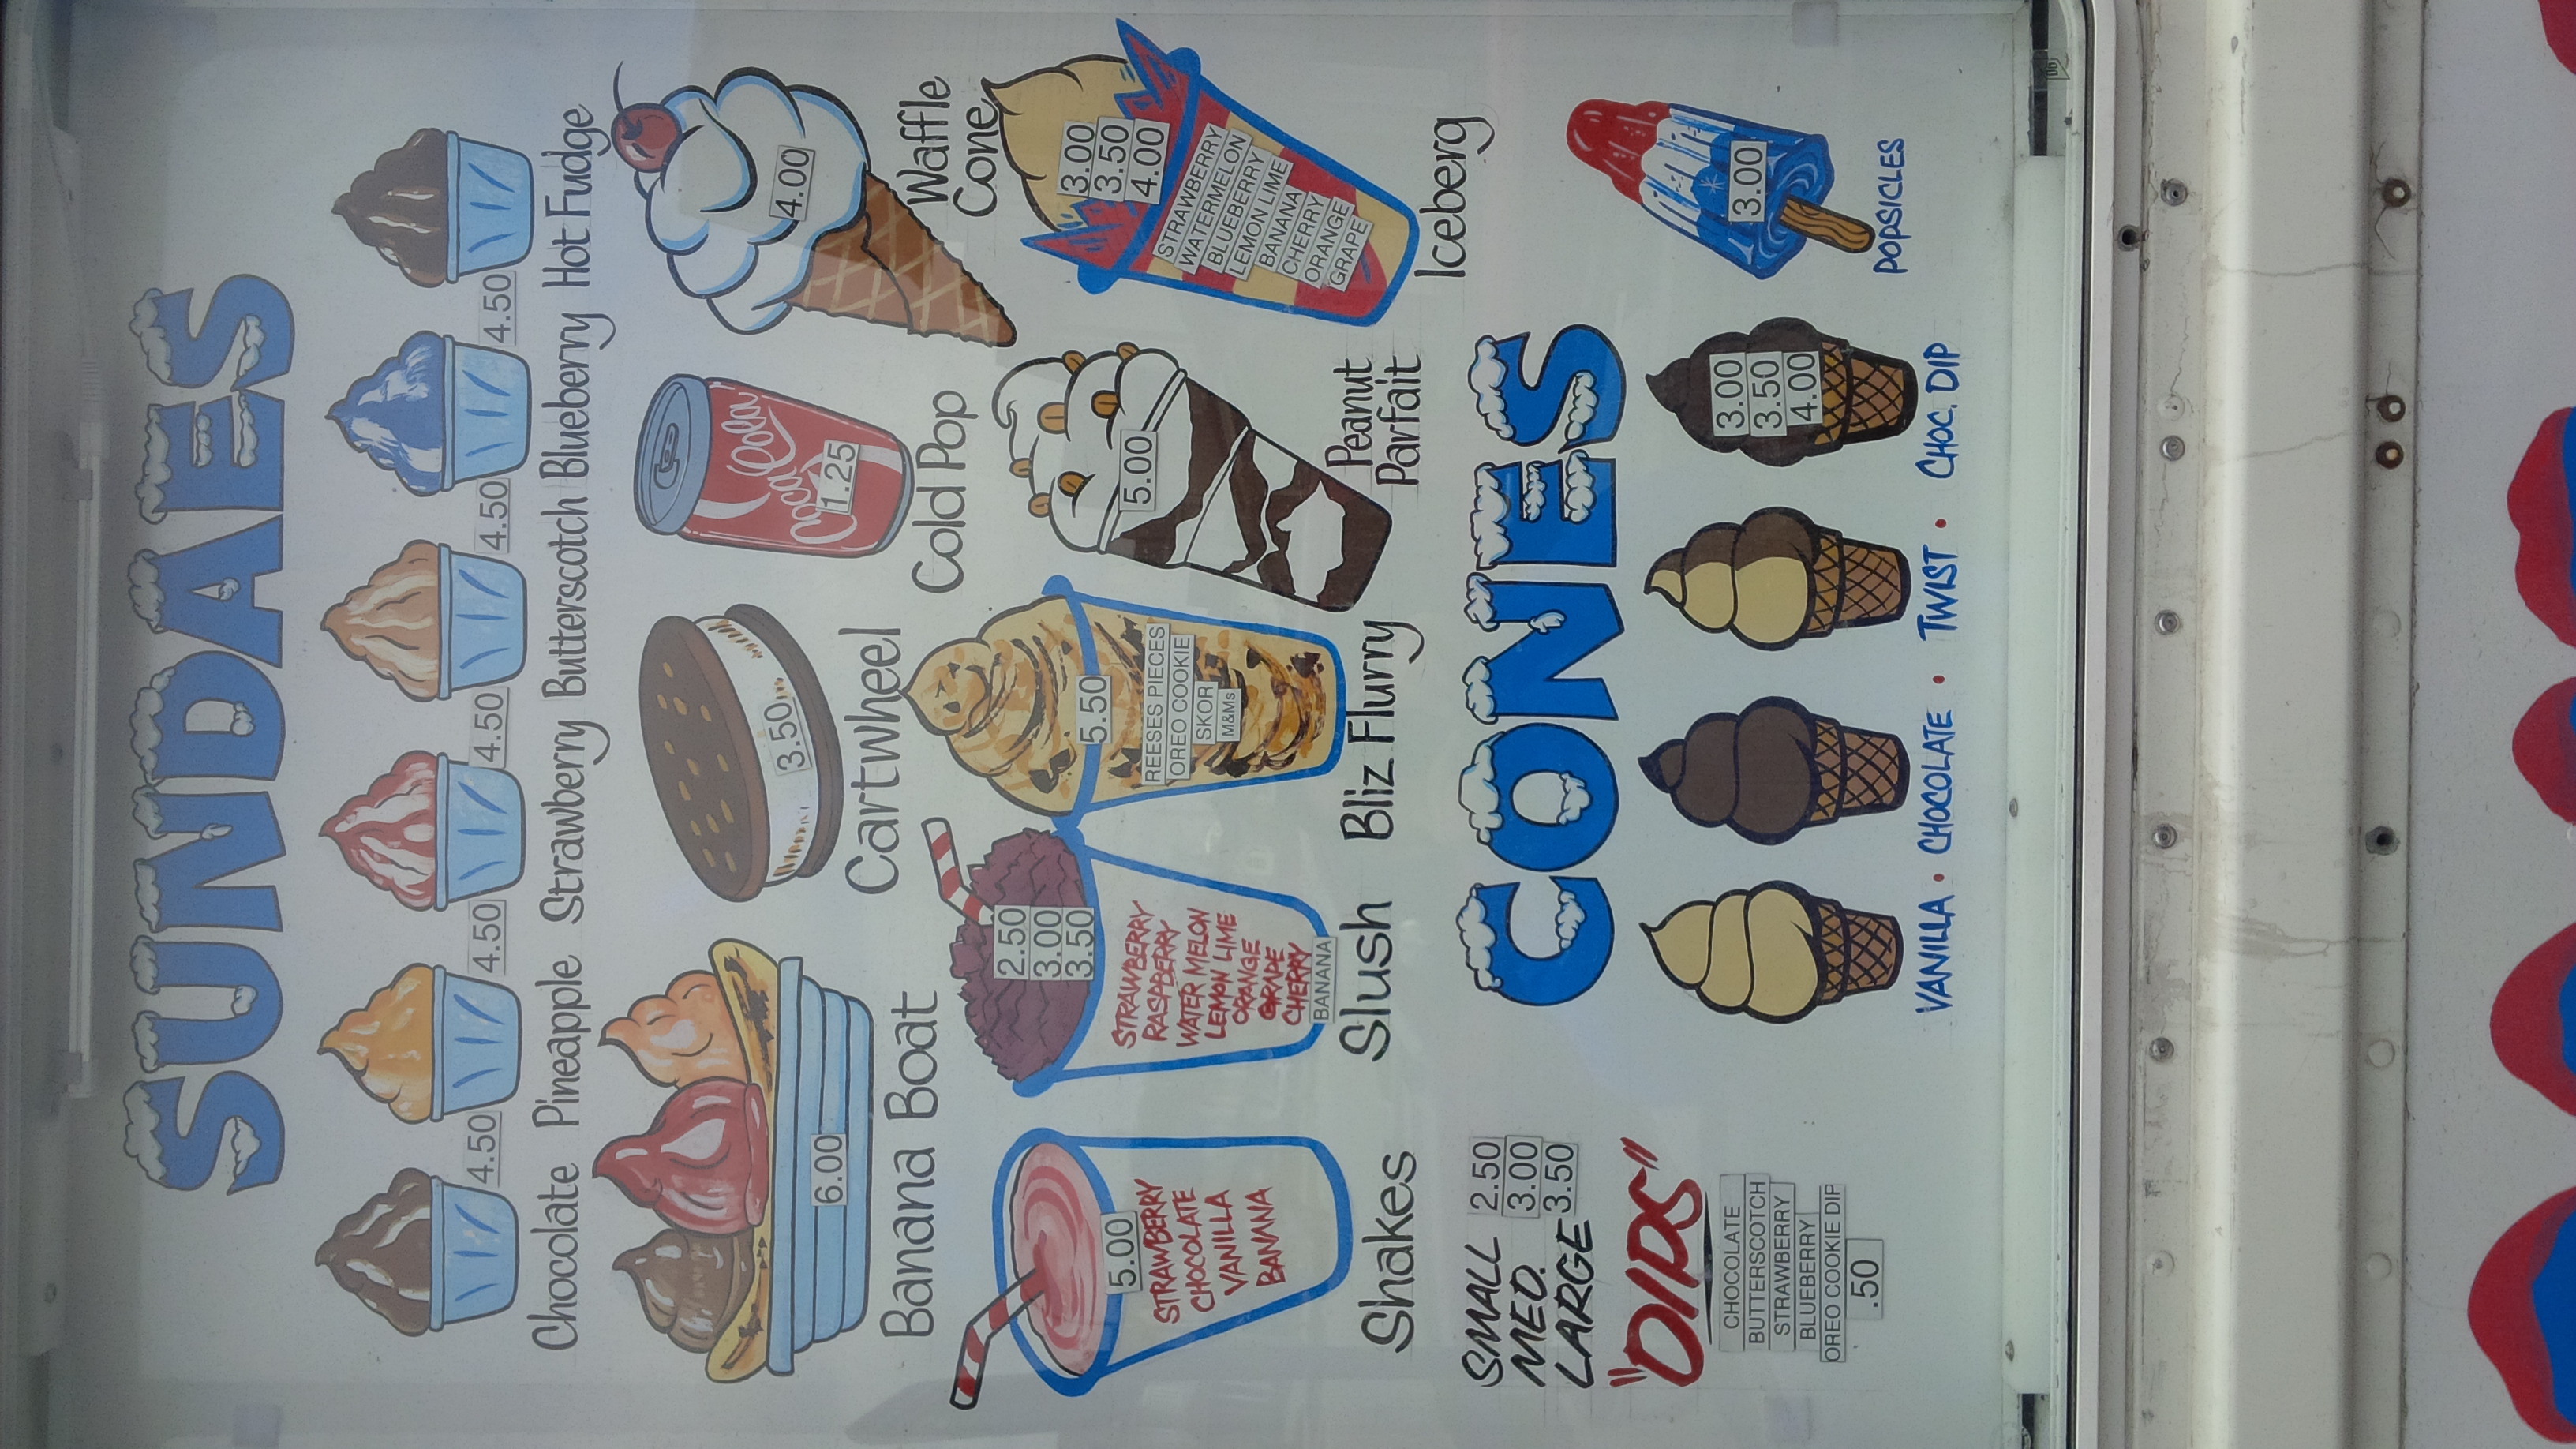 SUNDAES
4.50 4.50 4.50 4.50 4.50
Chocolate Pineapple Strawberry Butterscotch Blueberry Hot Fudge
6.00
Banana Boat
3.50
Cartwheel
Coca Cola
1.25
Cold Pop
4.00
Waffle
Cone
5.00
STRAWBERRY
CHOCOLATE
VANILLA
BANANA
Shakes
2.50
3.00
3.50
STRAWBERRY
RASPBERRY
WATER MELON
LEMON LIME
ORANGE
GRAPE
CHERRY
BANANA
Slush
5.50
REESES PIECES
OREO COOKIE
SKOR
M&Ms
Bliz Flurry
5.00
Peanut
Parfait
3.00
3.50
4.00
STRAWBERRY
WATERMELON
BLUEBERRY
LEMON LIME
BANANA
CHERRY
ORANGE
GRAPE
Iceberg
SMALL 2.50
MED. 3.00
LARGE 3.50
"DIPS"
CHOCOLATE
BUTTERSCOTCH
STRAWBERRY
BLUEBERRY
OREO COOKIE DIP
.50
CONES
3.00
3.50
4.00
VANILLA • CHOCOLATE • TWIST • CHOC. DIP
3.00
POPSICLES